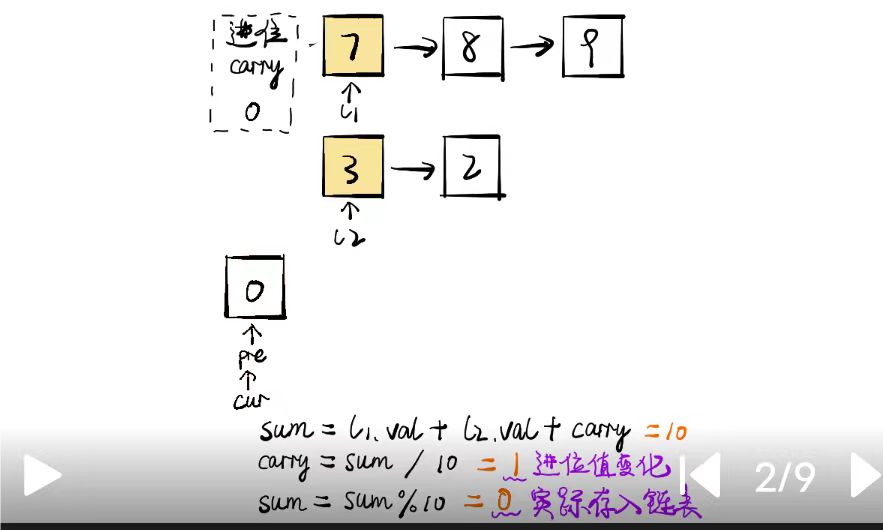 进位
carry
0
7 → 8 → 9
↑
l1
3 → 2
↑
l2
0
↑
pre
↑
cur
sum = l1.val + l2.val + carry = 10
carry = sum / 10 = 1 进位值变化
sum = sum%10 = 0 实际存入链表
2/9